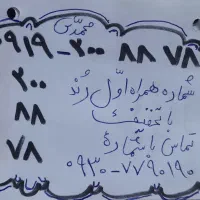 محمدی
۰۹۱۹-۲۰۰ ۸۸ ۷۸
۲۰۰
۸۸
۷۸
شماره همراه اوّل رُند
با تخفیف
تماس با شمارهٔ
۰۹۳۰-۷۷۹۰۱۹۰